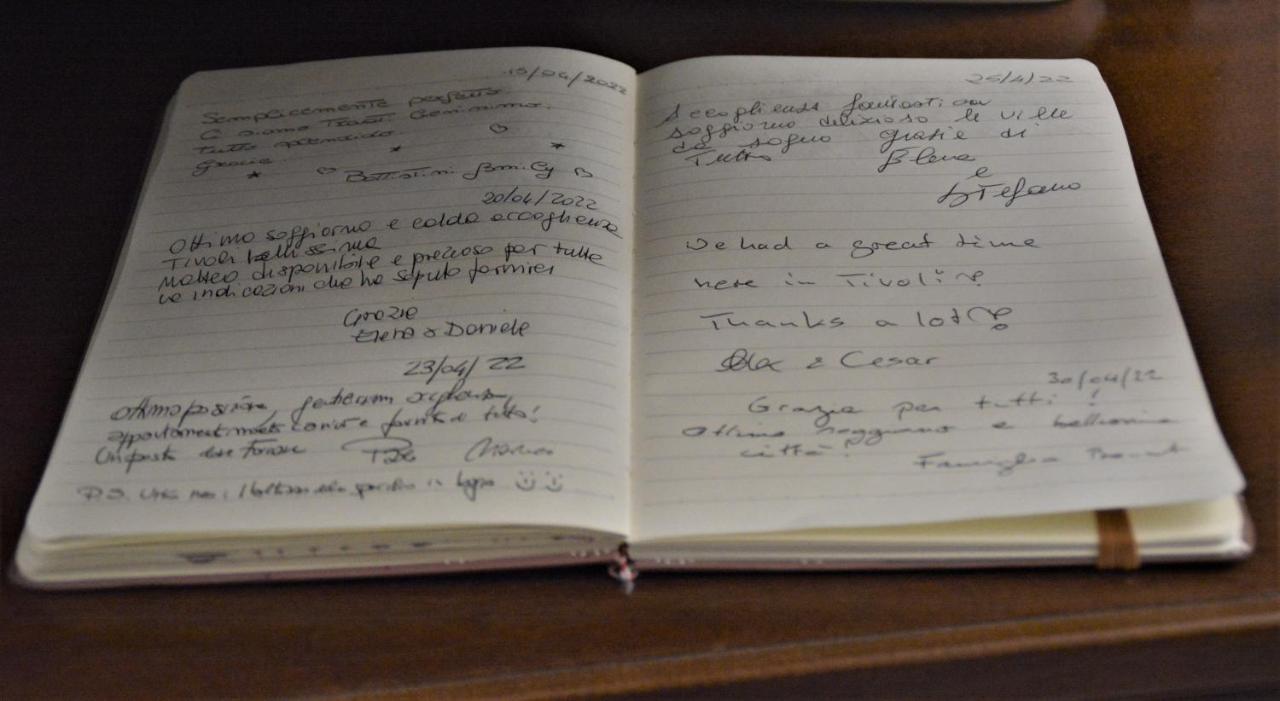 15/04/2022
Semplicemente perfetto
Ci siamo trovati benissimo.
tutto splendido.
Grazie
Battistini Family
20/04/2022
Ottimo soggiorno e calda accoglienza
Tivoli bellissima
Matteo disponibile e prezioso per tutte
le indicazioni che ha saputo fornirci
Grazie
Elena & Daniele
23/04/22
Ottima posizione,
appartamento e fornito di tutto!
P.S.
25/4/22
Accoglienza fantastica
soggiorno delizioso le ville
da sogno grazie di
Tutto Elena
e
Stefano
We had a great time
here in Tivoli
Thanks a lot
& Cesar
30/04/22
Grazie per tutti!
Ottimo soggiorno e bellissima
città!
Famiglia